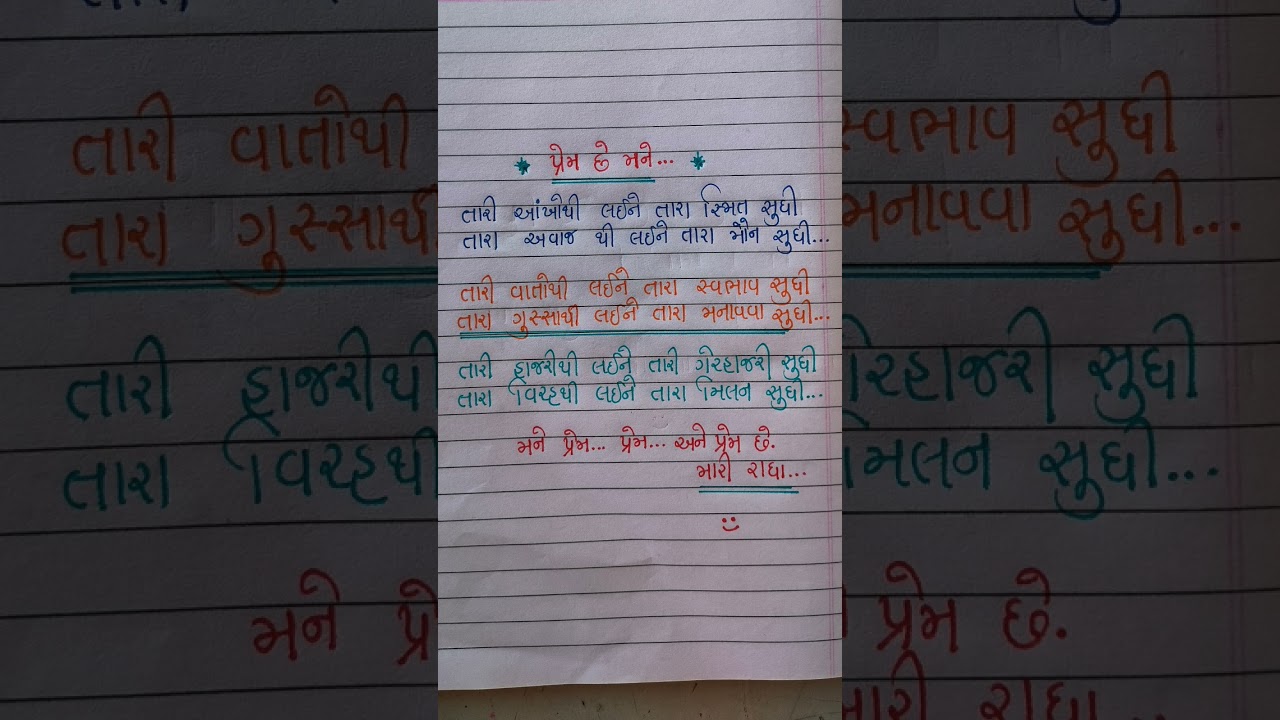 * પ્રેમ છે મને... *
તારી આંખોથી લઈને તારા સ્મિત સુધી
તારા અવાજ થી લઈને તારા મૌન સુધી...
તારી વાતોથી લઈને તારા સ્વભાવ સુધી
તારા ગુસ્સાથી લઈને તારા મનાવવા સુધી...
તારી હાજરીથી લઈને તારી ગેરહાજરી સુધી
તારા વિરહથી લઈને તારા મિલન સુધી...
મને પ્રેમ... પ્રેમ... અને પ્રેમ છે.
મારી રાધા...